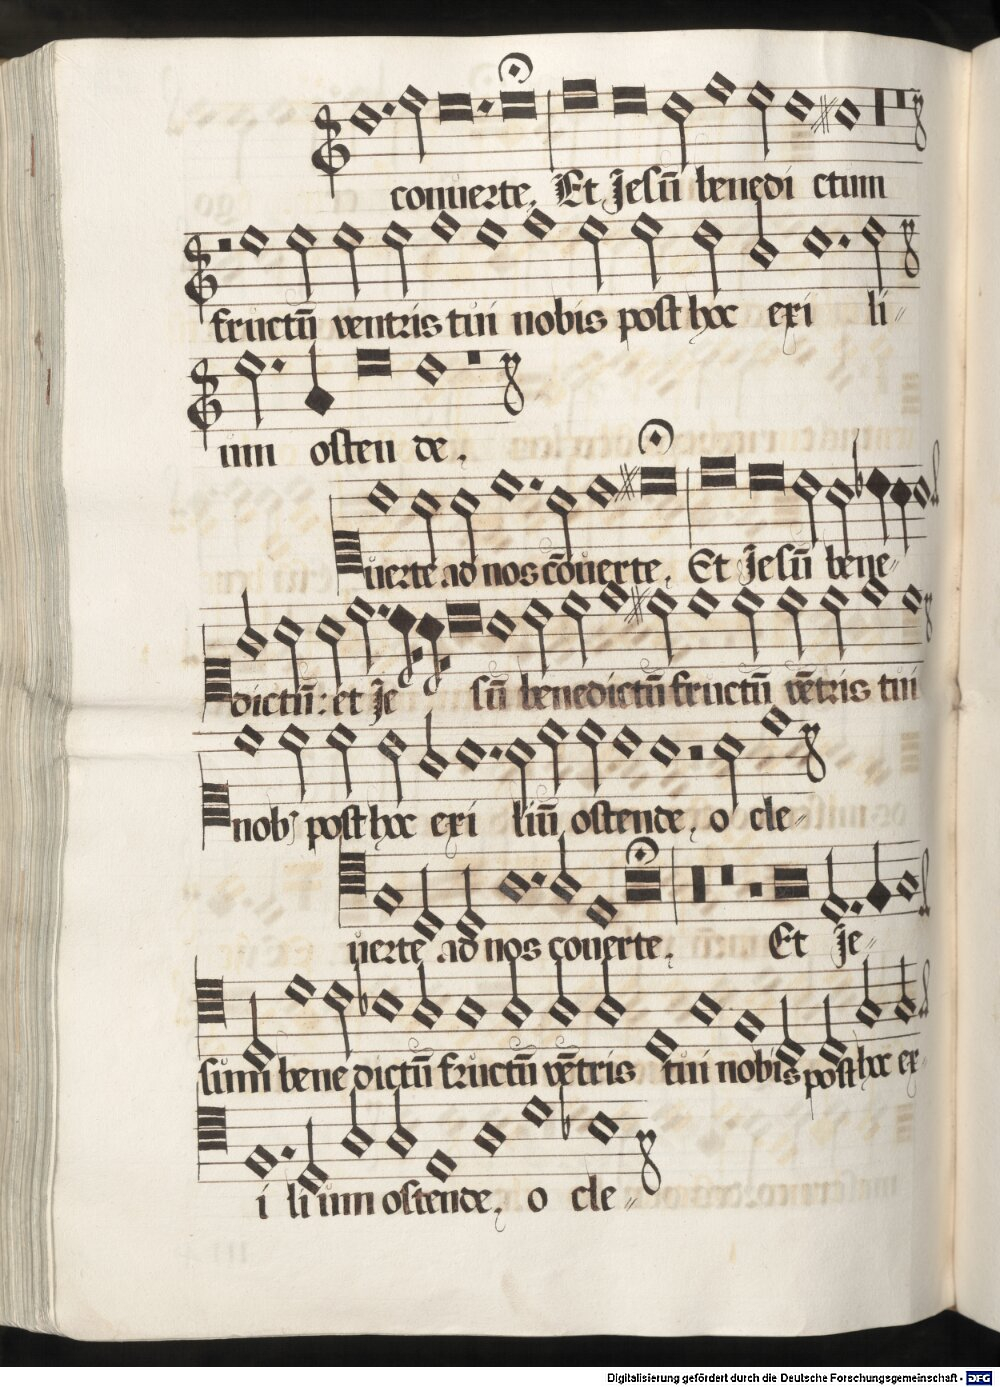 conuerte. Et Jesū benedi ctum
fructū ventris tui nobis post hoc exi li
um osten de.
uerte ad nos cōuerte. Et Jesū bene
dictū: et Je sū benedictū fructū vētris tui
nob post hoc exi liū ostende. o cle
uerte ad nos couerte. Et Je
sum bene dictū fructū vētris tui nobis post hoc ex
i li um ostende. o cle
Digitalisierung gefördert durch die Deutsche Forschungsgemeinschaft - DFG